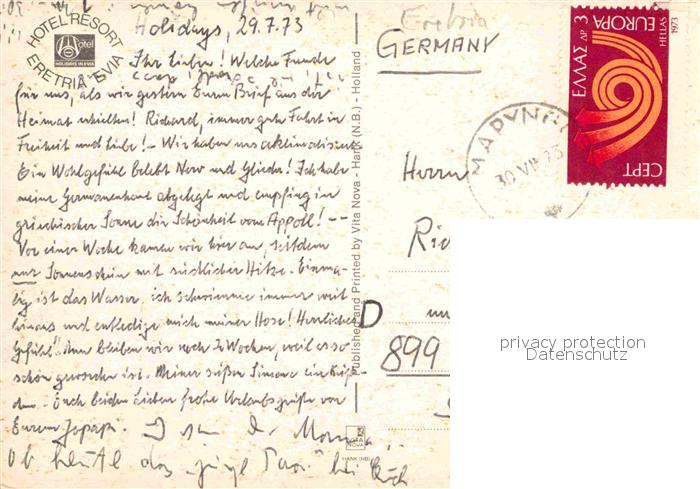 Holidays, 29.7.73
HOTEL RESORT
Hotel
HOLIDAYS IN EVIA
ERETRIA EVIA
Ihr Lieben! Welche Freude
für uns, als wir gestern Euren Brief aus der
Heimat erhielten! Richard, immer gute Fahrt in
Freiheit und Liebe! - Wir haben uns akklimatisiert.
Ein Wohlgefühl belebt Nerv und Glieder! Ich habe
meine Germanenhaut abgelegt und empfing in
griechischer Sonne die Schönheit vom Apoll! --
Vor einer Woche kamen wir hier an, seitdem
nur Sonnenschein mit südlicher Hitze. Einma-
lig ist das Wasser, ich schwimme immer weit
hinaus und entledige mich meiner Hose! Herrliches
Gefühl! Nun bleiben wir noch 2 Wochen, weil es so
schön geworden ist. Meiner süßen Simone ein Küß-
chen. Euch beiden Lieben frohe Urlaubsgrüße von
Eurem
Published and Printed by Vita Nova - Hank (N.B.) - Holland
VITA NOVA
HANK (NB)
Eretria
GERMANY
ΕΛΛΑΣ ΔΡ 3
EUROPA
HELLAS
1973
CEPT
30 VII 73
Herrn
D
899
privacy protection
Datenschutz